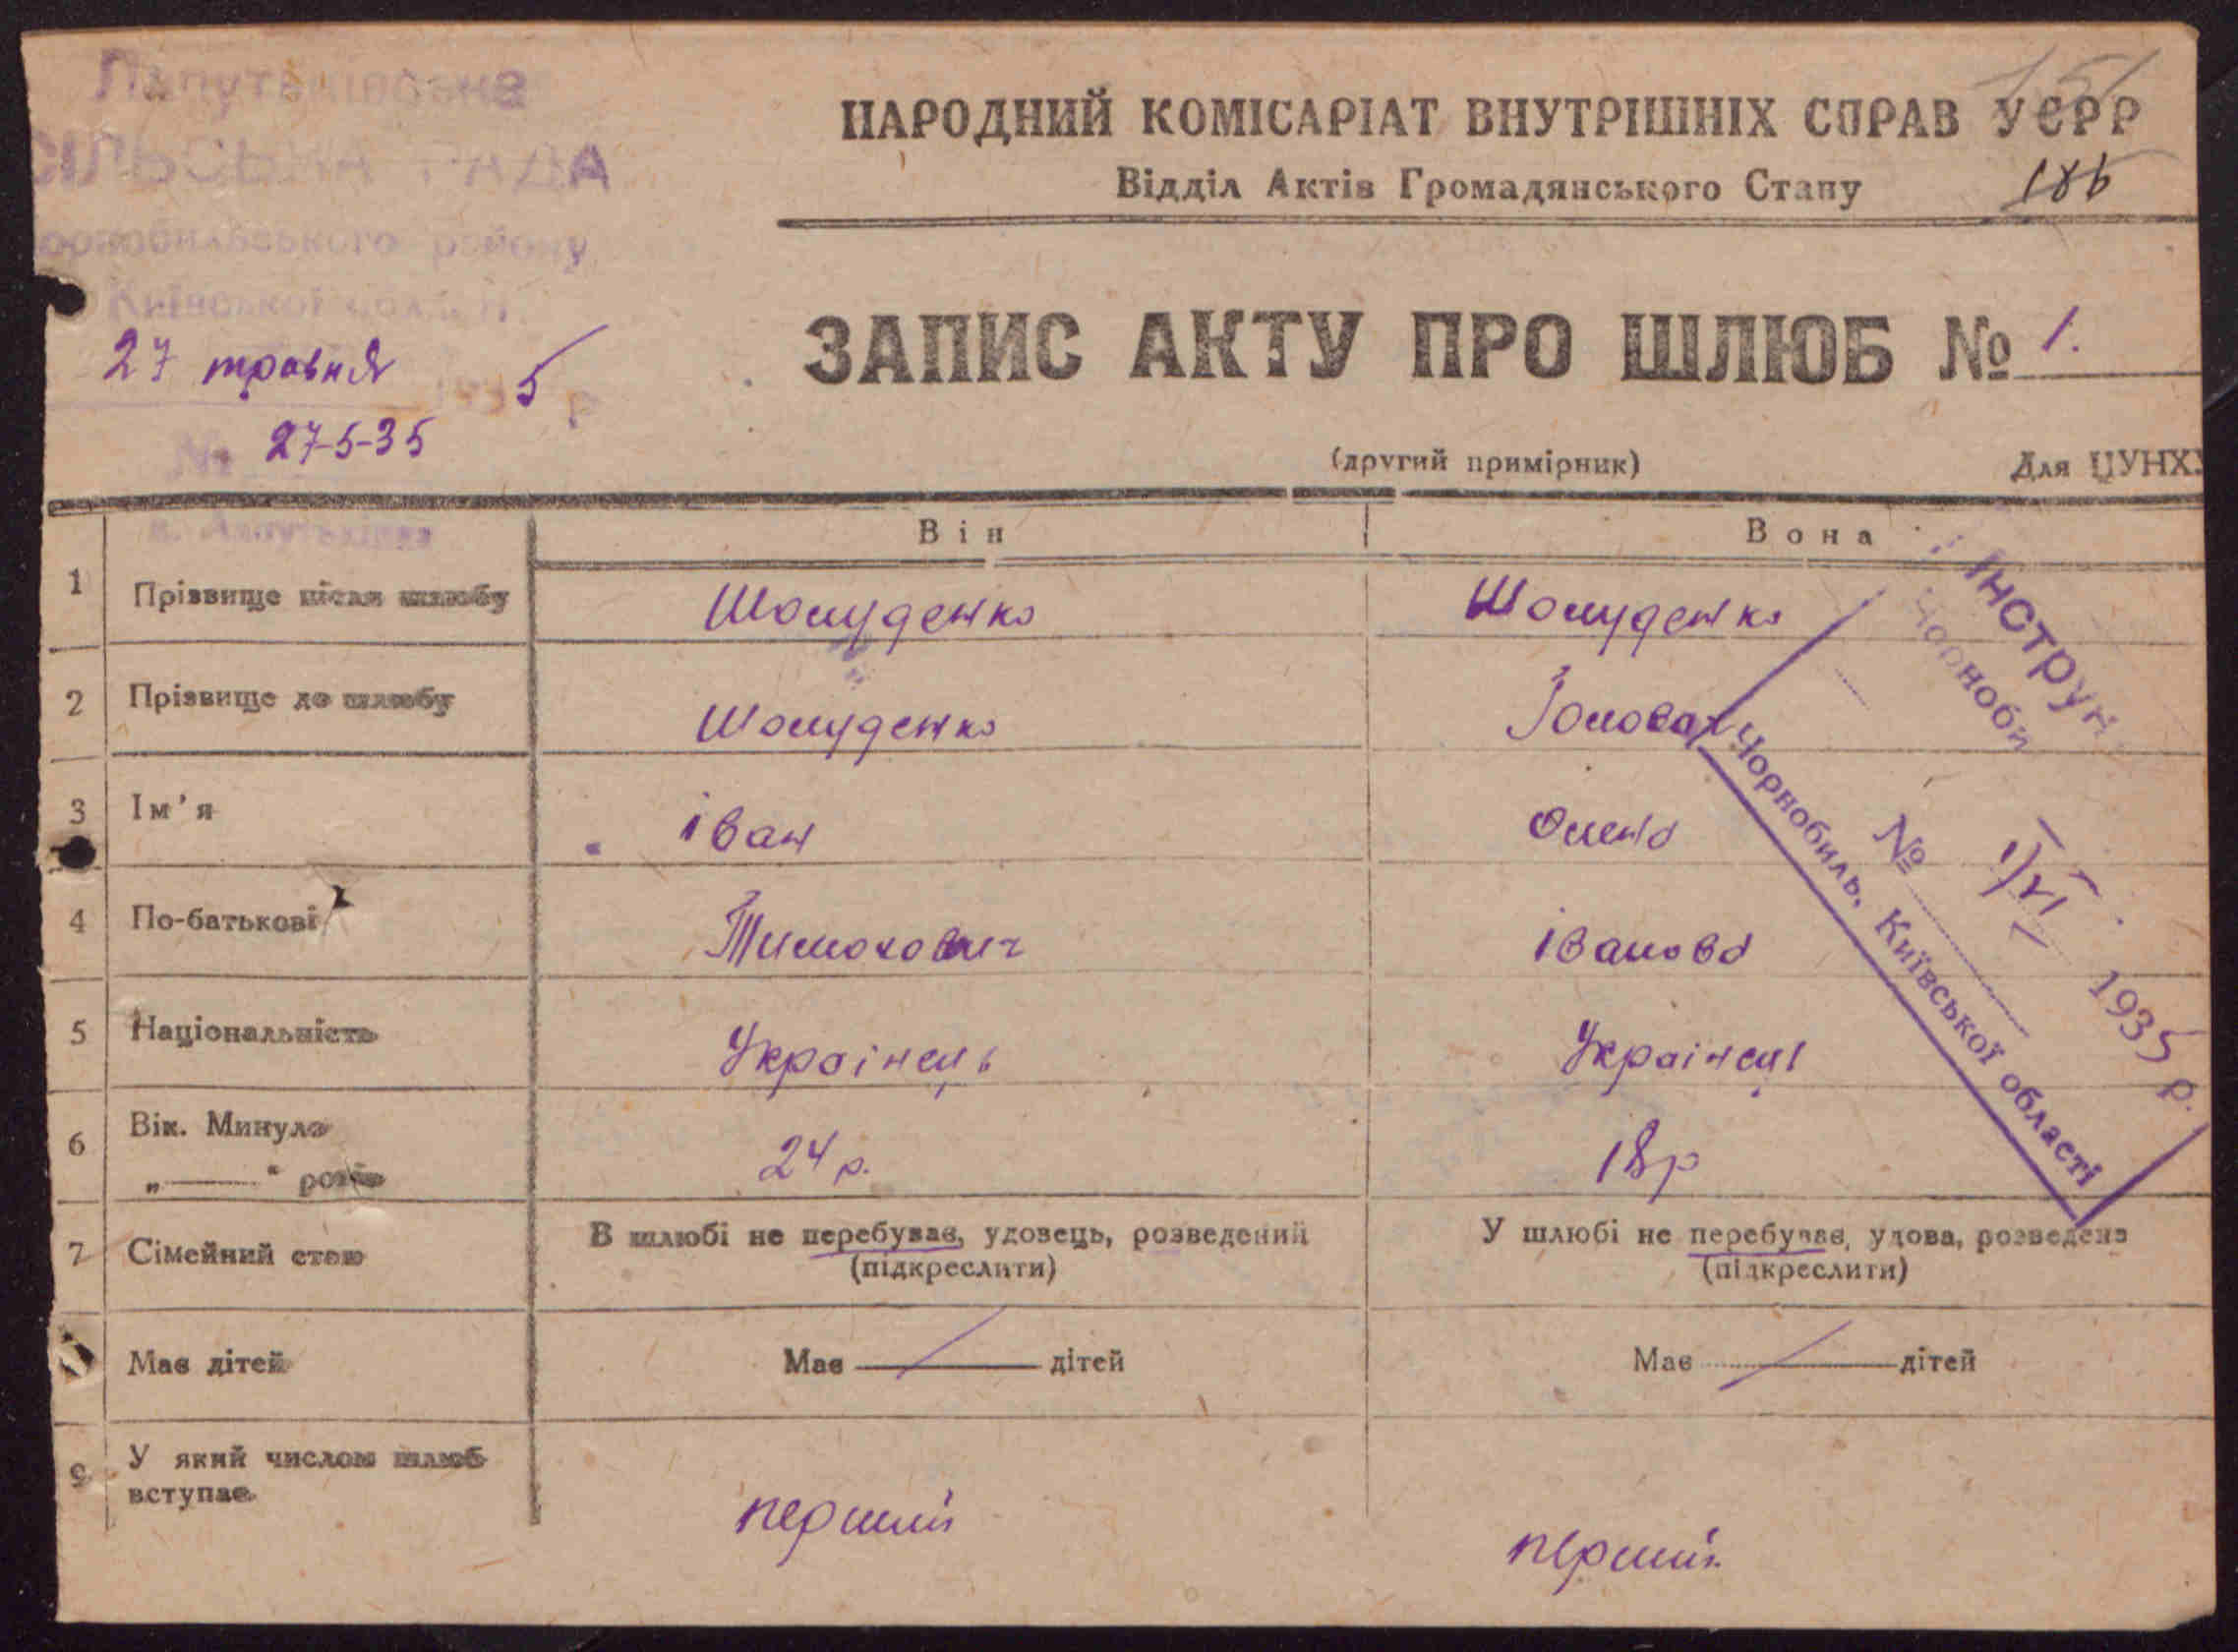 СІЛЬСЬКА РАДА
району
Київської
27 травня 1935 р.
№ 27-5-35
151
НАРОДНИЙ КОМІСАРІАТ ВНУТРІШНІХ СПРАВ УСРР
Відділ Актів Громадянського Стану
186
ЗАПИС АКТУ ПРО ШЛЮБ № 1.
(другий примірник)
Для ЦУНХУ
Він Вона
1 Прізвище після шлюбу Шолуденко Шолуденко
2 Прізвище до шлюбу Шолуденко
3 Ім’я Іван Олена
4 По-батькові Тимохович Іванова
5 Національність Українець Українець
6 Вік. Минуло 24 р. 18 р
„——“ років
7 Сімейний стан В шлюбі не перебував, удовець, розведений У шлюбі не перебував, удова, розведена
(підкреслити) (підкреслити)
Має дітей Має —— дітей Має —— дітей
9 У який числом шлюб
вступає перший перший
Інструк
Чорноби
№
1/VI 1935 р.
Чорнобиль, Київської області